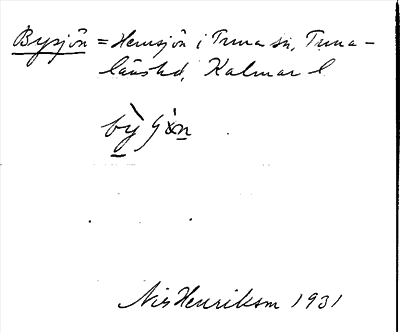 Bysjön = Hemsjön i Tuna sn, Tuna-
läns hd, Kalmar l.
Nils Henrikson 1931